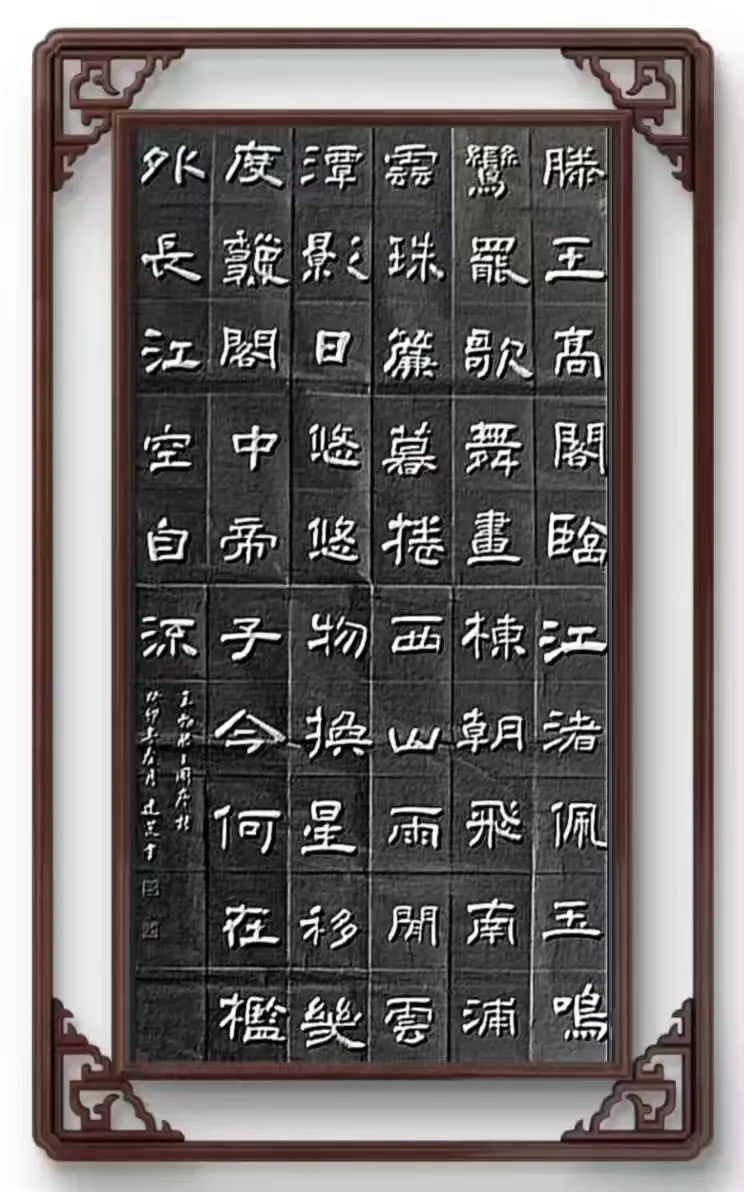 滕王高閣臨江渚佩玉鳴
鸞罷歌舞畫棟朝飛南浦
雲珠簾暮捲西山雨閒雲
潭影日悠悠物換星移幾
度秋閣中帝子今何在檻
外長江空自流
王勃滕王閣序詩
癸卯年春月建榮書